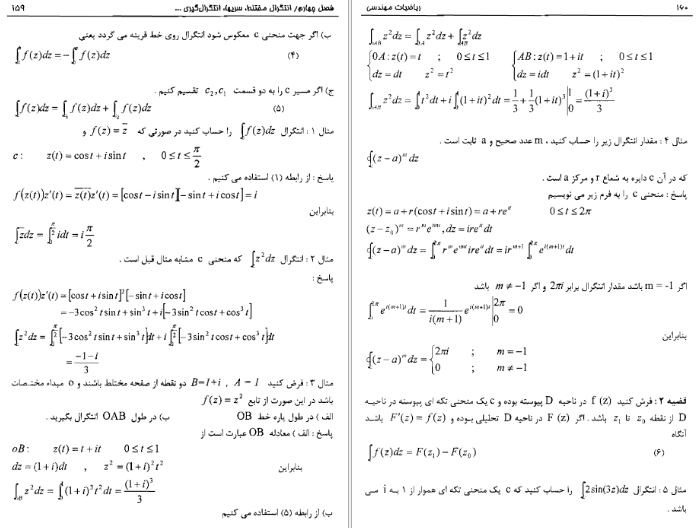 فصل چهارم/ انتگرال مختلط، سریها، انتگرال‌گیری ... ۱۵۹
ب) اگر جهت منحنی c معکوس شود انتگرال روی خط قرینه می گردد یعنی
∫ f(z)dz = −∫ f(z)dz (۴)
ج) اگر مسیر c را به دو قسمت c₂,c₁ تقسیم کنیم .
∫ f(z)dz = ∫ f(z)dz + ∫ f(z)dz (۵)
مثال ۱ : انتگرال ∫ f(z)dz را حساب کنید در صورتی که f(z) = z̄ و
c : z(t) = cos t + i sin t , 0 ≤ t ≤ π/2
پاسخ : از رابطه (۱) استفاده می کنیم .
f(z(t))z′(t) = z̄(t)z′(t) = [cos t − i sin t][− sin t + i cos t] = i
بنابراین
∫ z̄dz = ∫ idt = i π/2
مثال ۲ : انتگرال ∫ z²dz که منحنی c مشابه مثال قبل است .
پاسخ :
f(z(t))z′(t) = [cos t + i sin t]²[− sin t + i cos t]
= −3cos² t sin t + sin³ t + i[−3sin² t cos t + cos³ t]
∫ z²dz = ∫ [−3cos² t sin t + sin³ t]dt + i∫ [−3sin² t cos t + cos³ t]dt
= (−1−i)/3
مثال ۳ : فرض کنید B=1+i , A = 1 دو نقطه از صفحه مختلط باشند و o مبداء مختصات
باشد در این صورت از تابع f(z) = z²
الف ) در طول پاره خط OB ب) در طول OAB انتگرال بگیرید .
پاسخ : الف ) معادله OB عبارت است از
oB : z(t) = t + it 0 ≤ t ≤ 1
dz = (1+i)dt , z² = (1+i)² t² بنابراین
∫ z²dz = ∫ (1+i)³ t² dt = (1+i)³/3
ب) از رابطه (۵) استفاده می کنیم
۱۶۰ ریاضیات مهندسی
∫ z²dz = ∫ z²dz + ∫ z²dz
{0A : z(t) = t ; 0 ≤ t ≤ 1 {AB : z(t) = 1 + it ; 0 ≤ t ≤ 1
dz = dt z² = t² dz = idt z² = (1+it)²
∫ z²dz = ∫ t²dt + i∫ (1+it)²dt = 1/3 + 1/3 (1+it)³ |₀¹ = (1+i)³/3
مثال ۴ : مقدار انتگرال زیر را حساب کنید ، m عدد صحیح و a ثابت است .
∮(z − a)ᵐ dz
که در آن c دایره به شعاع r و مرکز a است .
پاسخ : منحنی c را به فرم زیر می نویسیم
z(t) = a + r(cos t + i sin t) = a + reⁱᵗ 0 ≤ t ≤ 2π
(z − z₀)ᵐ = rᵐeⁱᵐᵗ , dz = ireⁱᵗ dt
∮(z − a)ᵐ dz = ∫ rᵐeⁱᵐᵗ ireⁱᵗ dt = irᵐ⁺¹ ∫ eⁱ⁽ᵐ⁺¹⁾ᵗ dt
اگر m = -1 باشد مقدار انتگرال برابر 2πi و اگر m ≠ −1 باشد
∫ eⁱ⁽ᵐ⁺¹⁾ᵗ dt = 1/i(m+1) eⁱ⁽ᵐ⁺¹⁾ᵗ |₀²π = 0
بنابراین
∮(z − a)ᵐ dz = {2πi ; m = −1
0 ; m ≠ −1
قضیه ۲ : فرض کنید f (z) در ناحیه D پیوسته بوده و c یک منحنی تکه ای پیوسته در ناحیه
D از نقطه z₀ تا z₁ باشد . اگر F (z) در ناحیه D تحلیلی بوده و F′(z) = f(z) باشد
آنگاه
∫ f(z)dz = F(z₁) − F(z₀) (۶)
مثال ۵ : انتگرال ∫ 2sin(3z)dz را حساب کنید که c یک منحنی تکه ای هموار از ۱ به i می
باشد .